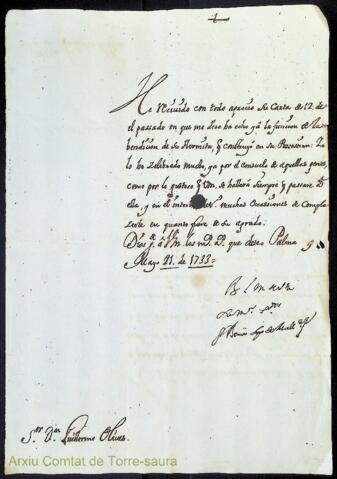 He recivido con todo aprecio su Carta de 12. de
el passado en que me dice ha echo ya la funcion de la
bendicion de su Hermita, y
lo ha zelebrado mucho, ya por el consuelo de aquellas gentes,
como por lo gustoso q Vm. se hallará siempre
ella, y en el interin muchas ocassiones de Compla
zerle en quanto fuere de su agrado.
Dios g. a Vm. los ms. as. que deseo Palma
Mayo 21. de 1733=
B L M de Vm
Su Mr. 
Sr. Dn. Guillermo Olives.
Arxiu Comtat de Torre-saura